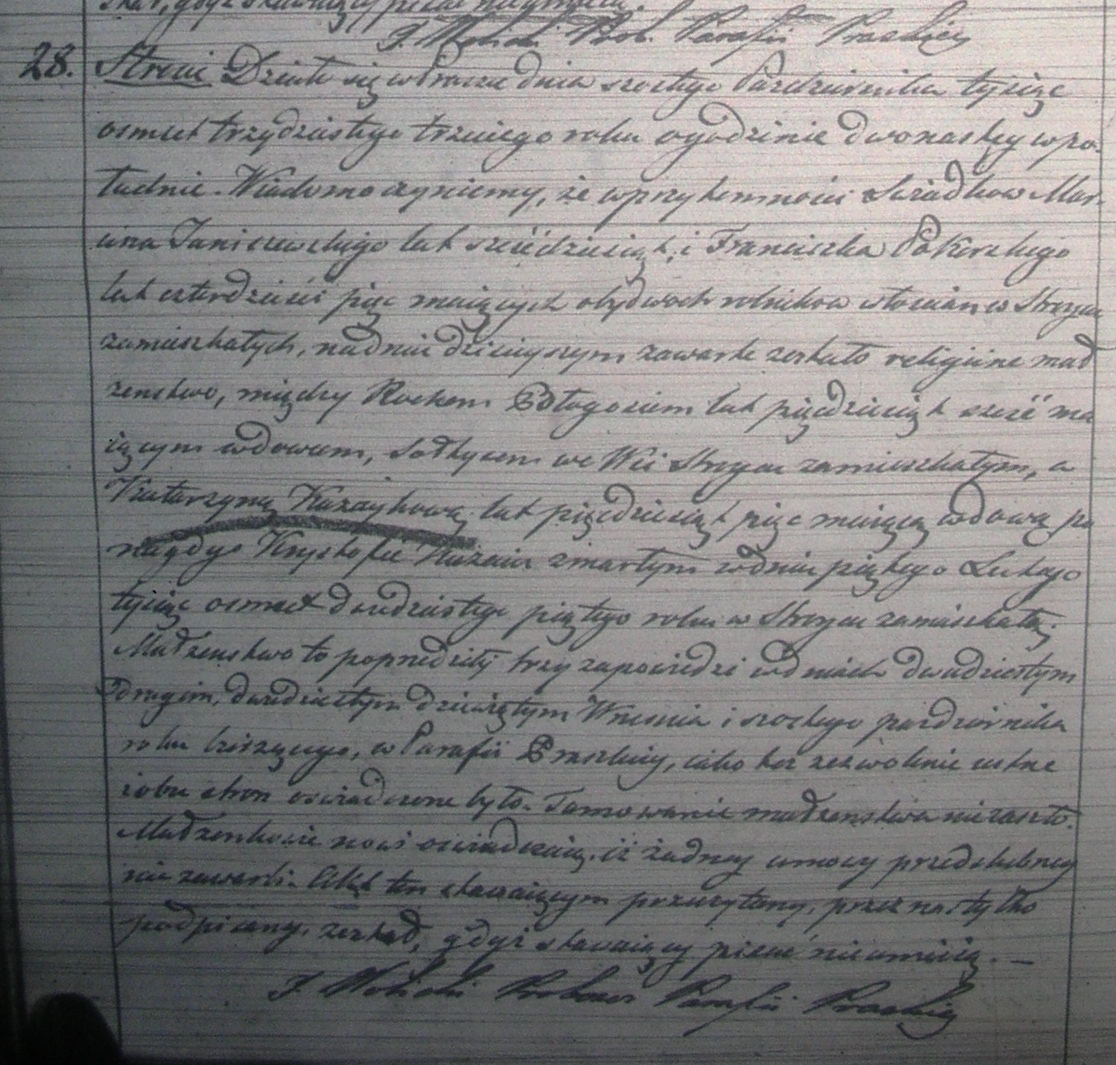 gdyż stawający pisać nieumieją.
J. Prob. Parafii Praskiej
28. Działo się w Prasce dnia szóstego Października tysiąc
osmset trzydziestego trzeciego roku o godzinie dwonastej w po-
łudnie. Wiadomo czyniemy, że w przytomności Swiadków Mar-
cina Janiszewskiego lat sześćdziesiąt, i Franciszka Pokorskiego
lat czterdzieści pięć maiących obydwoch rolników włościan w
zamieszkałych, na dniu dzisieyszym zawarte zostało religijne mał
żenstwo, między Rochem Błogosiem lat pięćdziesiąt sześć ma
iącym wdowcem, Sołtysem we Wsi zamieszkałym, a
Katarzyną lat pięćdziesiąt pięc maiącą wdową po
niegdyś Krysztofie zmarłym w dniu piątego Lutego
tysiąc osmset dwudziestego piątego roku w zamieszkałą.
Małżenstwo to poprzedziły trzy zapowiedzi w dniach dwudziestym
drugim, dwudziestym dziewiątym Wrzesnia i szostego pazdziernika
roku bieżącego, w Parafii Praskiey, iako też zezwolenie ustne
z obu stron oswiadczone było. Tamowanie małżenstwa nie zaszło.
Małżonkowie nowi oswiadczaią, iż żadney umowy przedslubney
nie zawarli. Akt ten stawaiącym przeczytany, przez nas tylko
podpisany został, gdyż stawaiący pisać nie umieią. —
J. Proboszcz Parafii Praskiey